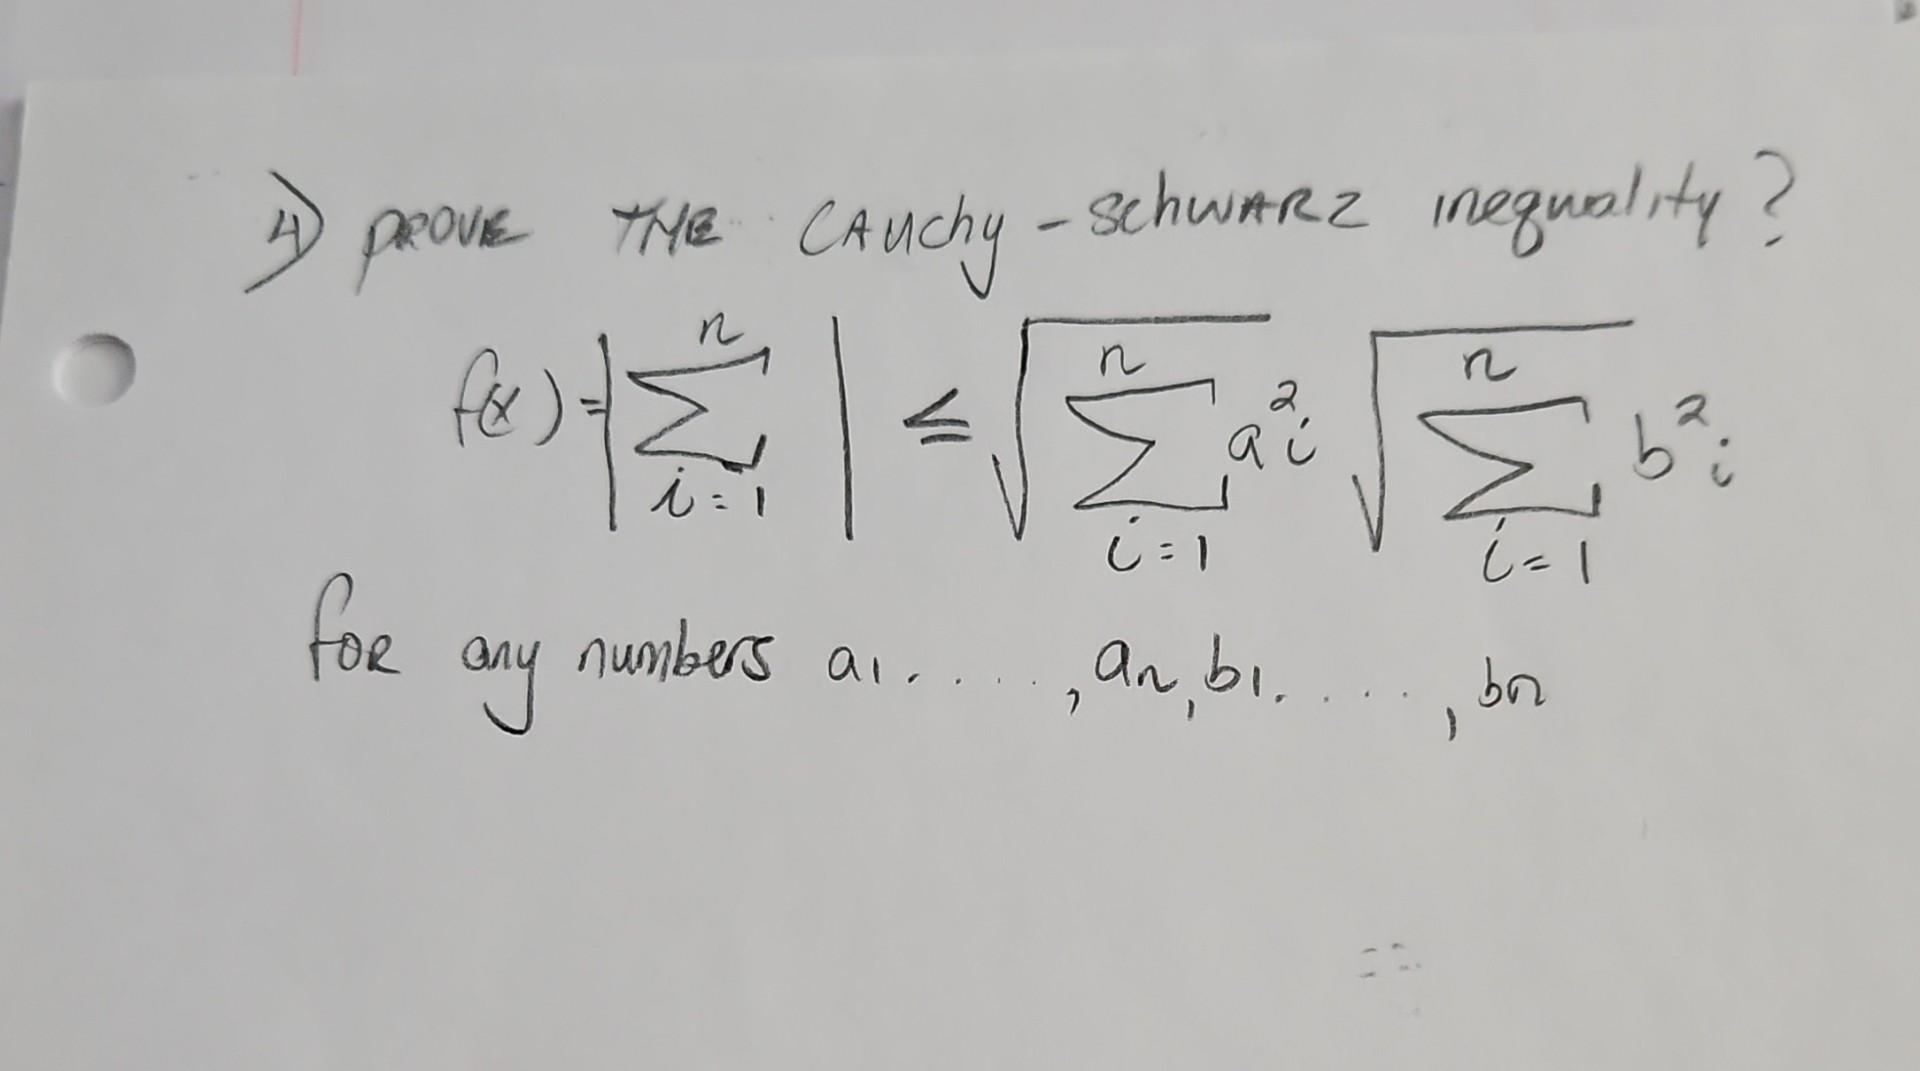 4) PROVE THE CAUchy-SchWARZ inequality?
f(x)=|∑_{i=1}^{n} | ≤ √∑_{i=1}^{n} a²i √∑_{i=1}^{n} b²i
for any numbers a1.....,an,b1.....,bn